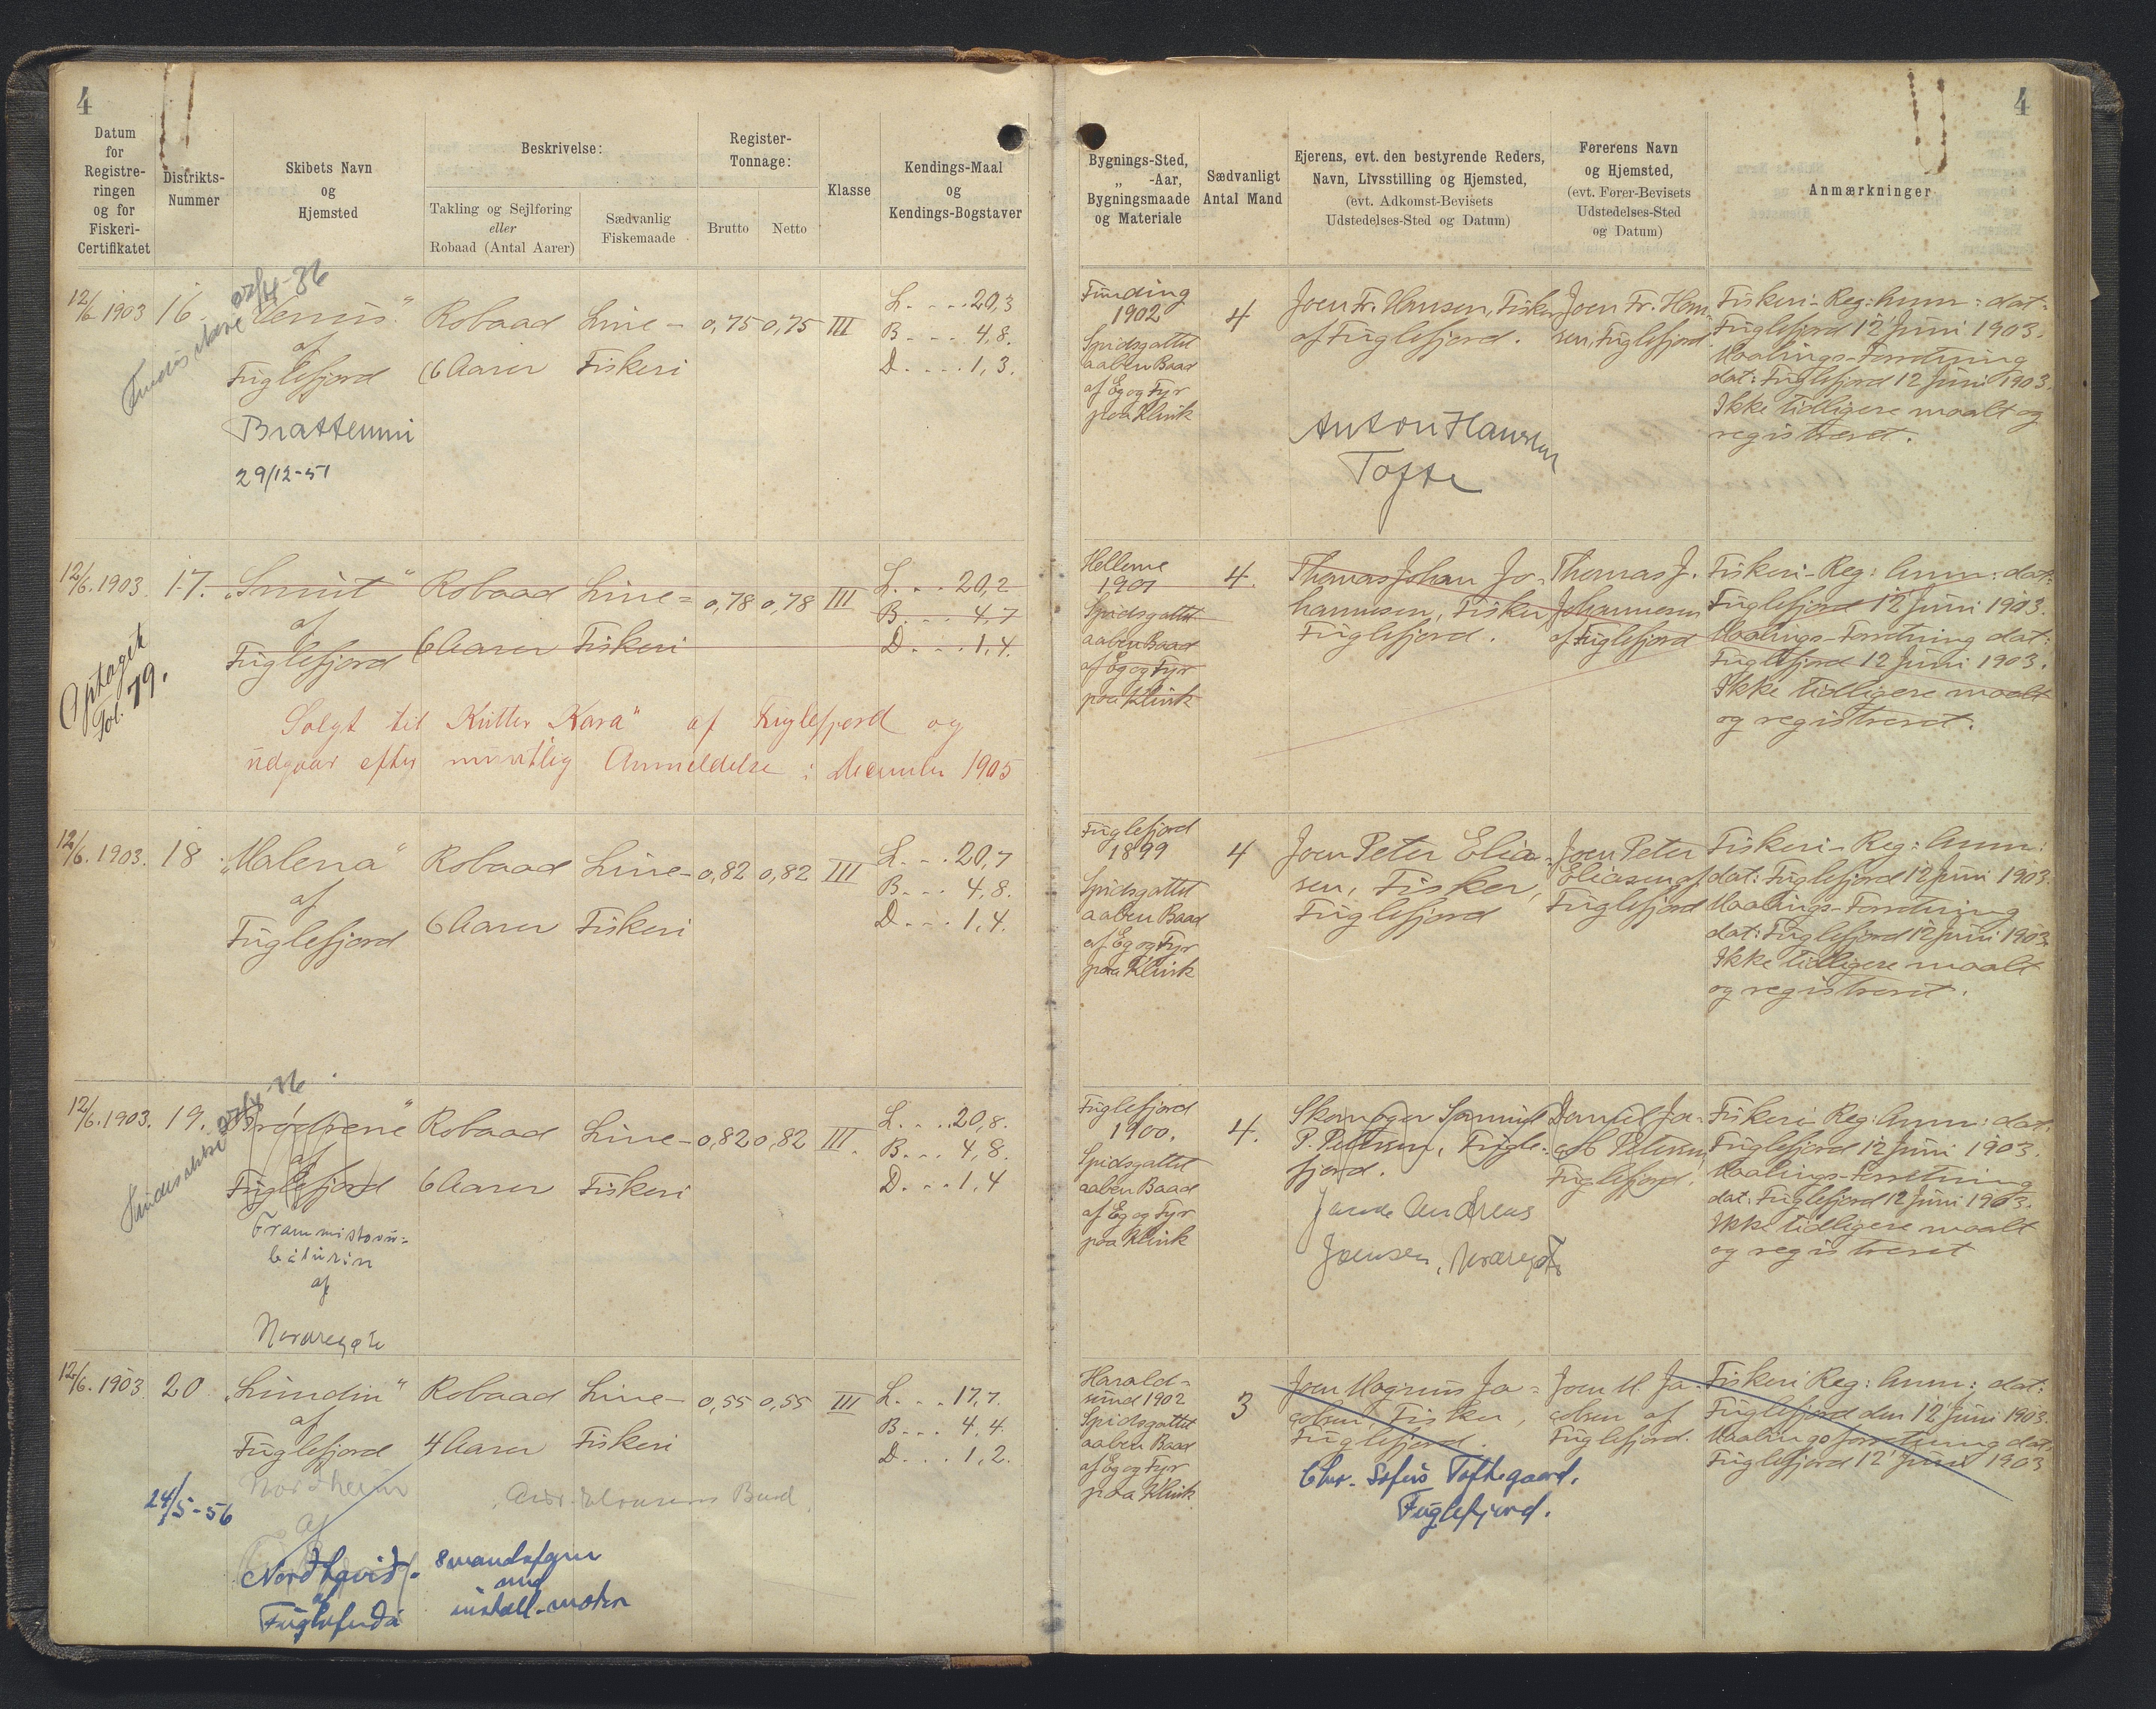 4
Datum
for
Registre-
ringen
og for
Fiskeri-
Certifikatet
Distrikts-
Nummer
Skibets Navn
og
Hjemsted
Beskrivelse:
Takling og Sejlføring
eller
Robaad (Antal Aarer)
Sædvanlig
Fiskemaade
Register-
Tonnage:
Brutto
Netto
Klasse
Kendings-Maal
og
Kendings-Bogstaver
12/6 1903
16.
27/4-36
Findes ikke
"Venus"
af
Fuglefjord
Brattenni
29/12-51
Robaad
6 Aarer
Line-
Fiskeri
0,75
0,75
III
L. . . . 20,3
B - - - 4,8.
D. . . . 1,3.
12/6. 1903.
17.
Optaget
Fol. 79.
"Smut"
af
Fuglefjord
Robaad
6 Aarer
Line=
Fiskeri
0,78
0,78
III
L. . . 20,2
B. . . 4,7
D. . . 1,4.
Solgt til Kutter "Kara" af Fuglefjord og
udgaar efter mundtlig Anmeldelse i December 1905
12/6. 1903.
18
"Malena"
af
Fuglefjord
Robaad
6 Aarer
Line-
Fiskeri
0,82
0,82
III
L. . . 20,7
B. . . 4,8.
D. . . 1,4.
12/6. 1903.
19.
Findes ikke 27/4-36
"Brødrene"
af
Fuglefjord
Frammistovu=
báturin
af
Norðregøte
Robaad
6 Aarer
Line-
Fiskeri
0,82
0,82
III.
L. . . . 20,8.
B. . . 4,8.
D. . . 1,4
12/6. 1903.
20
"Lundin"
af
Fuglefjord
Robaad
4 Aarer
Line-
Fiskeri
0,55
0,55
III
L. . . 17,7.
B. . . 4,4.
D. . . 1,2.
Nordheim
af
24/5-56
af
8 mandsfar
med
install. motor
4
Bygnings-Sted,
„ -Aar,
Bygningsmaade
og Materiale
Sædvanligt
Antal Mand
Ejerens, evt. den bestyrende Reders,
Navn, Livsstilling og Hjemsted,
(evt. Adkomst-Bevisets
Udstedelses-Sted og Datum)
Førerens Navn
og Hjemsted,
(evt. Fører-Bevisets
Udstedelses-Sted
og Datum)
Anmærkninger
Funding
1902
Spidsgattet
aaben Baad
af Eg og Fyr
paa Klink
4
Joen Fr. Hansen, Fisker
af Fuglefjord.
Anton Hansen
Tofte
Joen Fr. Han-
sen, Fuglefjord
Fiskeri-Reg: Anm: dat:
Fuglefjord 12 Juni 1903.
Maalings-Forretning
dat: Fuglefjord 12 Juni 1903.
Ikke tidligere maalt og
registreret.
Hellerne
1901
Spidsgattet
aaben Baad
af Eg og Fyr
paa Klink
4.
Thomas Johan Jo-
hannesen, Fisker
Fuglefjord.
Thomas J.
Johannesen
af Fuglefjord
Fiskeri-Reg: Anm: dat:
Fuglefjord 12 Juni 1903.
Maalings-Forretning dat:
Fuglefjord 12 Juni 1903.
Ikke tidligere maalt
og registreret.
Fuglefjord
1899
Spidsgattet
aaben Baad
af Eg og Fyr
paa Klink
4
Joen Peter Elia-
sen, Fisker,
Fuglefjord
Joen Peter
Eliasen af
Fuglefjord
Fiskeri-Reg: Anm:
dat: Fuglefjord 12 Juni 1903.
Maalings-Forretning
dat: Fuglefjord 12 Juni 1903.
Ikke tidligere maalt
og registreret.
Fuglefjord
1900.
Spidsgattet
aaben Baad
af Eg og Fyr
paa Klink
4.
Skomager Samuel
P. Petersen, Fugle-
fjord.
Andreas
Joensen, Norðregøte
Daniel Ja-
cob Petersen
Fuglefjord.
Fiskeri-Reg: Anm: dat:
Fuglefjord 12 Juni 1903.
Maalings-Forretning
dat: Fuglefjord 12 Juni 1903.
Ikke tidligere maalt
og registreret
Harald-
sund 1902
Spidsgattet
aaben Baad
af Eg og Fyr
paa Klink.
3
Joen Magnus Ja=
cobsen, Fisker,
Fuglefjord.
Chr. Sofus Toftegaard.
Fuglefjord.
Joen M. Ja-
cobsen af
Fuglefjord.
Fiskeri Reg: Anm: dat:
Fuglefjord den 12 Juni 1903.
Maalingsforretning dat:
Fuglefjord 12 Juni 1903